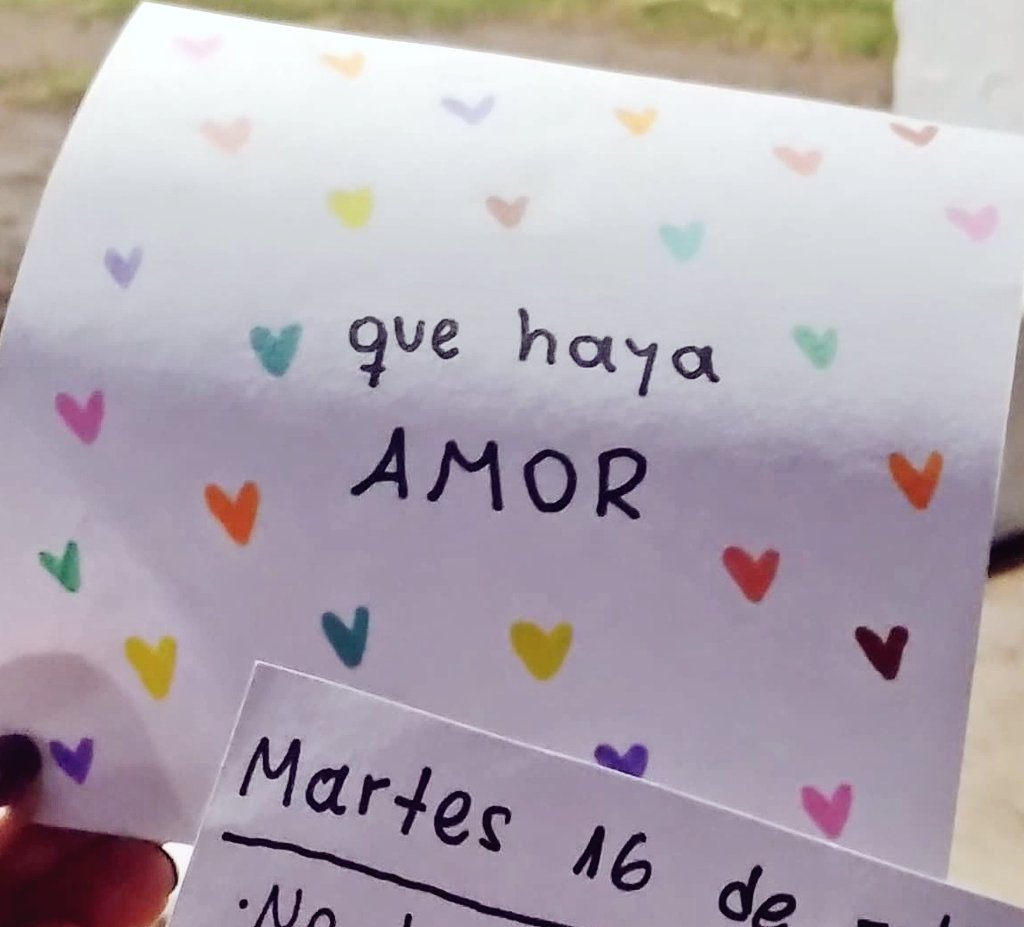 que haya
AMOR
Martes 16 de
·No